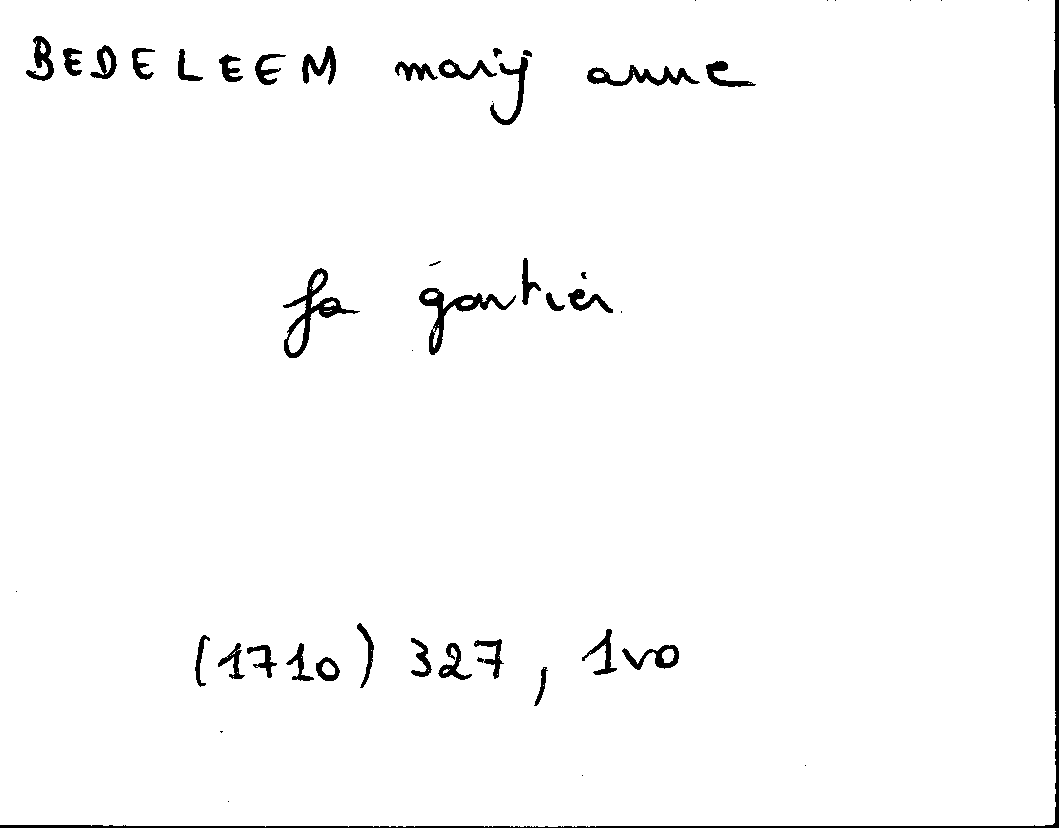 BEDELEEM marij anne
fa gautier
(1710) 327, 1vo